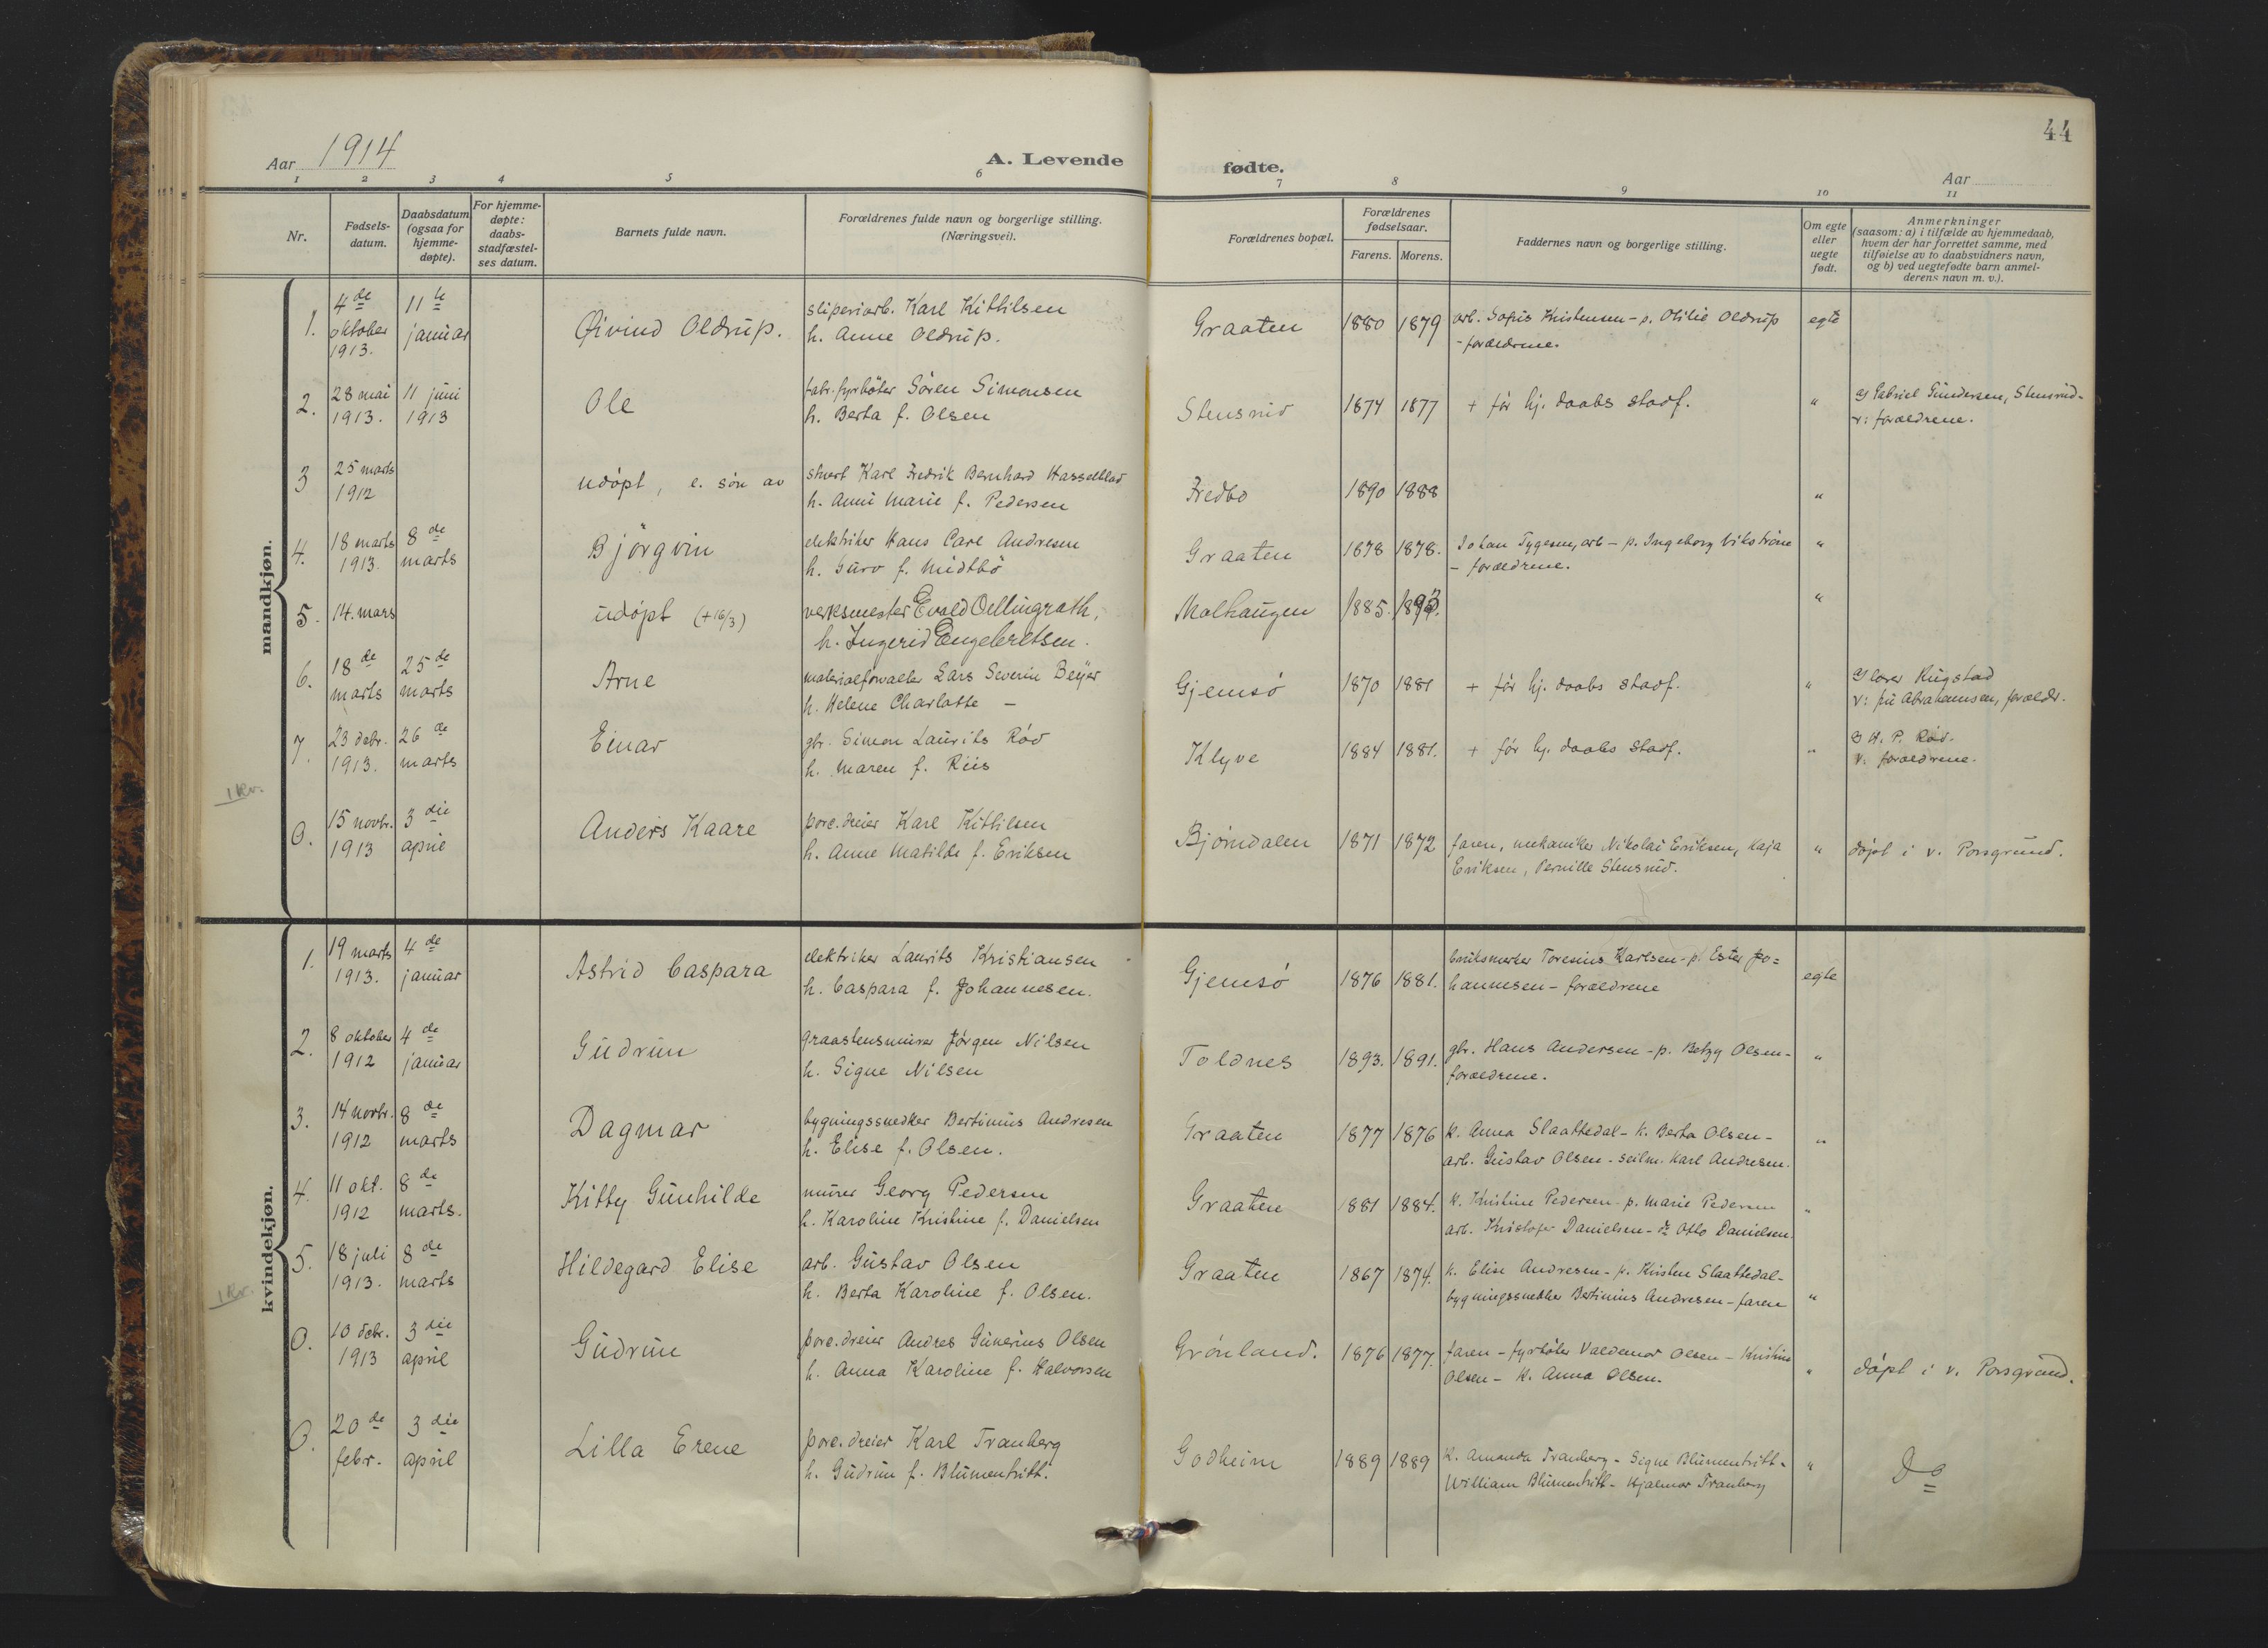 Aar 1914
A. Levende fødte.
44
Aar
1 2 3 4 5 6 7 8 9 10 11
Nr.
Fødsels-
datum.
Daabsdatum
(ogsaa for
hjemme-
døpte).
For hjemme-
døpte:
daabs-
stadfæstel-
ses datum.
Barnets fulde navn.
Forældrenes fulde navn og borgerlige stilling.
(Næringsvei).
Forældrenes bopæl.
Forældrenes
fødselsaar.
Farens. Morens.
Faddernes navn og borgerlige stilling.
Om egte
eller
uegte
født.
Anmerkninger
(saasom: a) i tilfælde av hjemmedaab,
hvem der har forrettet samme, med
tilføielse av to daabsvidners navn,
og b) ved uegtefødte barn anmel-
derens navn m. v.).
mandkjøn.
1. 4de oktober 1913. 11te januar Øivind Oldrup. sliperiarb. Karl Kittilsen
h. Anne Oldrup. Graaten 1880 1879 arb. Sofus Kristensen - p. Otilie Oldrup
- forældrene. egte
2. 28 mai 1913. 11 juni 1913 Ole fabr. fyrbøter Søren Simonsen
h. Berta f. Olsen Stensrud 1874 1877 + før hj. daabs stadf. " Gabriel Gundersen, Stensrud -
v: forældrene.
3 25 marts 1912 udøpt, e. søn av stuert Karl Fredrik Bernhard Hasselblad
h. Anni Marie f. Pedersen Fredbo 1890 1888 "
4. 18 marts 1913. 8de marts Bjørgvin elektriker Hans Carl Andresen
h. Guro f. Midtbö Graaten 1878 1878. Johan Tygesen, arb - p. Ingeborg Vikströne
- forældrene. "
5. 14. mars udöpt (+16/3) verksmester Evald Oellingrath,
h. Ingerid Engebretsen. Molhaugen 1885. 1893. "
6. 18de marts 25de marts Arne materialforvalter Lars Severin Beyer
h. Helene Charlotte - Gjemsø 1870 1881 + før hj. daabs stadf. " Rugstad
v: fru Abrahamsen, forældr.
7. 23 debr. 1913. 26de marts Einar gbr. Simon Laurits Röd
h. Maren f. Riis Klyve 1884 1881. + før hj. daabs stadf. " H. P. Röd.
v. forældrene.
1 Kv.
0. 15 novbr. 1913 3die april Anders Kaare porc. dreier Karl Kittilsen
h. Anne Matilde f. Eriksen Bjørndalen 1871 1872 faren, mekaniker Nikolai Eriksen, Kaja
Eriksen, Pernille Stensrud. " døpt i v. Porsgrund.
kvindekjøn.
1. 19 marts 1913. 4de januar Astrid Caspara elektriker Laurits Kristiansen
h. Caspara f. Johannesen. Gjemsø 1876 1881. Toresius Karlsen - p. Ester Jo=
hannesen - forældrene egte
2. 8 oktober 1912 4de januar Gudrun graastensmurer Jørgen Nilsen
h. Signe Nilsen Toldnes 1893. 1891. gbr. Hans Andersen - p. Betzy Olsen -
forældrene. "
3. 14 novbr. 1912 8de marts Dagmar bygningssnedker Bertinius Andresen
h. Elise f. Olsen. Graaten 1877 1876 k. Anna Slaattedal - k. Berta Olsen -
arb. Gustav Olsen - seilm. Karl Andresen. "
4. 11 okt. 1912 8de marts. Kitty Gunhilde murer Georg Pedersen
h. Karoline Kristine f. Danielsen Graaten 1881 1884. k. Kristine Pedersen - p. Marie Pedersen
arb. Kristofer Danielsen - do Otto Danielsen. "
5. 18 juli 1913. 8de marts Hildegard Elise arb. Gustav Olsen
h. Berta Karoline f. Olsen. Graaten 1867 1874. k. Elise Andresen - p. Kirsten Slaattedal -
bygningssnedker Bertinius Andresen - faren "
1 Kv.
0. 10 debr. 1913 3die april Gudrun porc. dreier Andres Gunerius Olsen
h. Anna Karoline f. Halvorsen Grønland. 1876 1877. faren - fyrbøter Valdemar Olsen - Kristine
Olsen - k. Anna Olsen. " døpt i v. Porsgrund.
0. 20de febr. 3die april Lilla Erene porc. dreier Karl Tranberg
h. Gudrun f. Blumentritt. Godheim 1889 1889 k. Amanda Tranberg - Signe Blumentritt -
William Blumentritt - Hjalmar Tranberg " Do